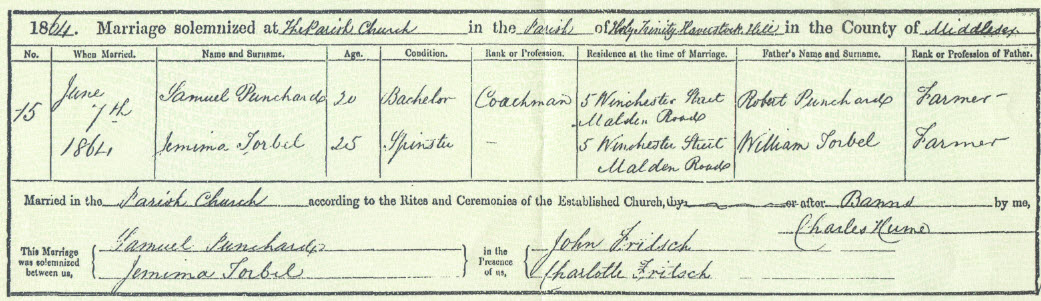 1864. Marriage solemnized at The Parish Church in the Parish of Holy Trinity Haverstock Hill in the County of Middlesex
No. When Married. Name and Surname. Age. Condition. Rank or Profession. Residence at the time of Marriage. Father's Name and Surname. Rank or Profession of Father.
15 June 7th 1864 Samuel Punchard 20 Bachelor Coachman 5 Winchester Street Malden Road Robert Punchard Farmer
Jemima Torbel 25 Spinster — 5 Winchester Street Malden Road William Torbel Farmer
Married in the Parish Church according to the Rites and Ceremonies of the Established Church, by or after Banns by me,
Charles Hume
This Marriage was solemnized between us,
Samuel Punchard
Jemima Torbel
in the Presence of us,
John Fritsch
Charlotte Fritsch